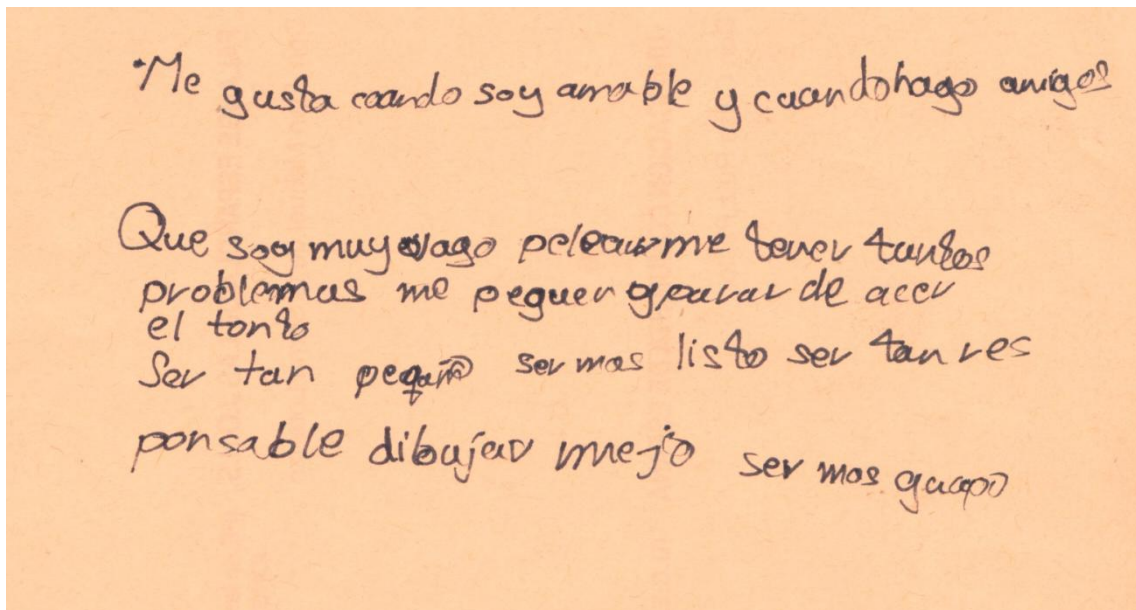 ·Me gusta cuando soy amable y cuando hago amigos
Que soy muy vago pelearme tener tantos
problemas me peguen y parar de acer
el tonto
Ser tan pequño ser mas listo ser tan res
ponsable dibujar mejo ser mas guapo